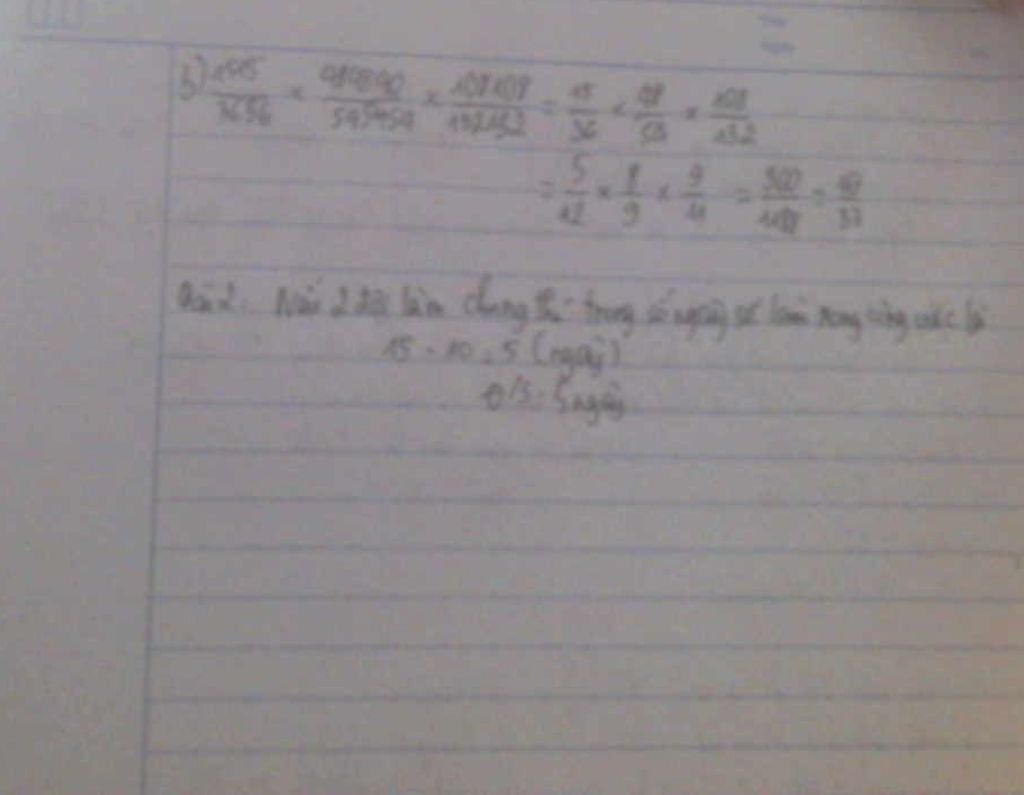 b) 1515/3636 × 484848/545454 × 108108/132132 = 15/36 × 48/54 × 108/132
= 5/12 × 8/9 × 9/11 = 360/1188 = 10/33
Bài 2: Nếu 2 đội làm chung thì trong số ngày sẽ làm xong công việc là
15 - 10 = 5 (ngày)
Đ/S: 5 ngày